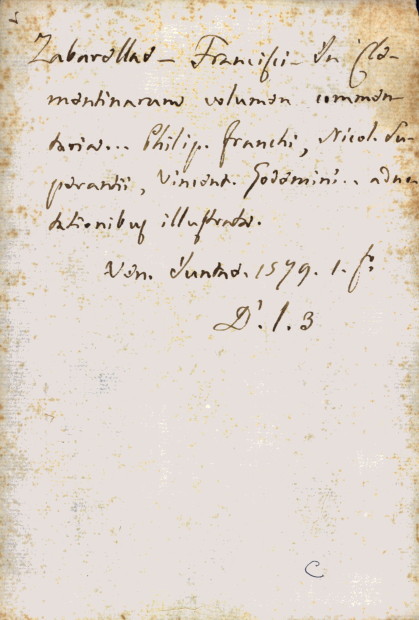 Zabarellae - Francisci - In Cle-
mentinarum volumen commen
taria... Philip. Franchi, Nicol. Su-
perantii, Vincent. Godemini.. adno-
tationibus illustrata.
Ven. Iuntae. 1579. 1. fo.
D'. 1. 3
C